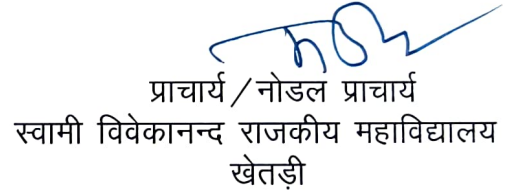 प्राचार्य / नोडल प्राचार्य
स्वामी विवेकानन्द राजकीय महाविद्यालय
खेतड़ी